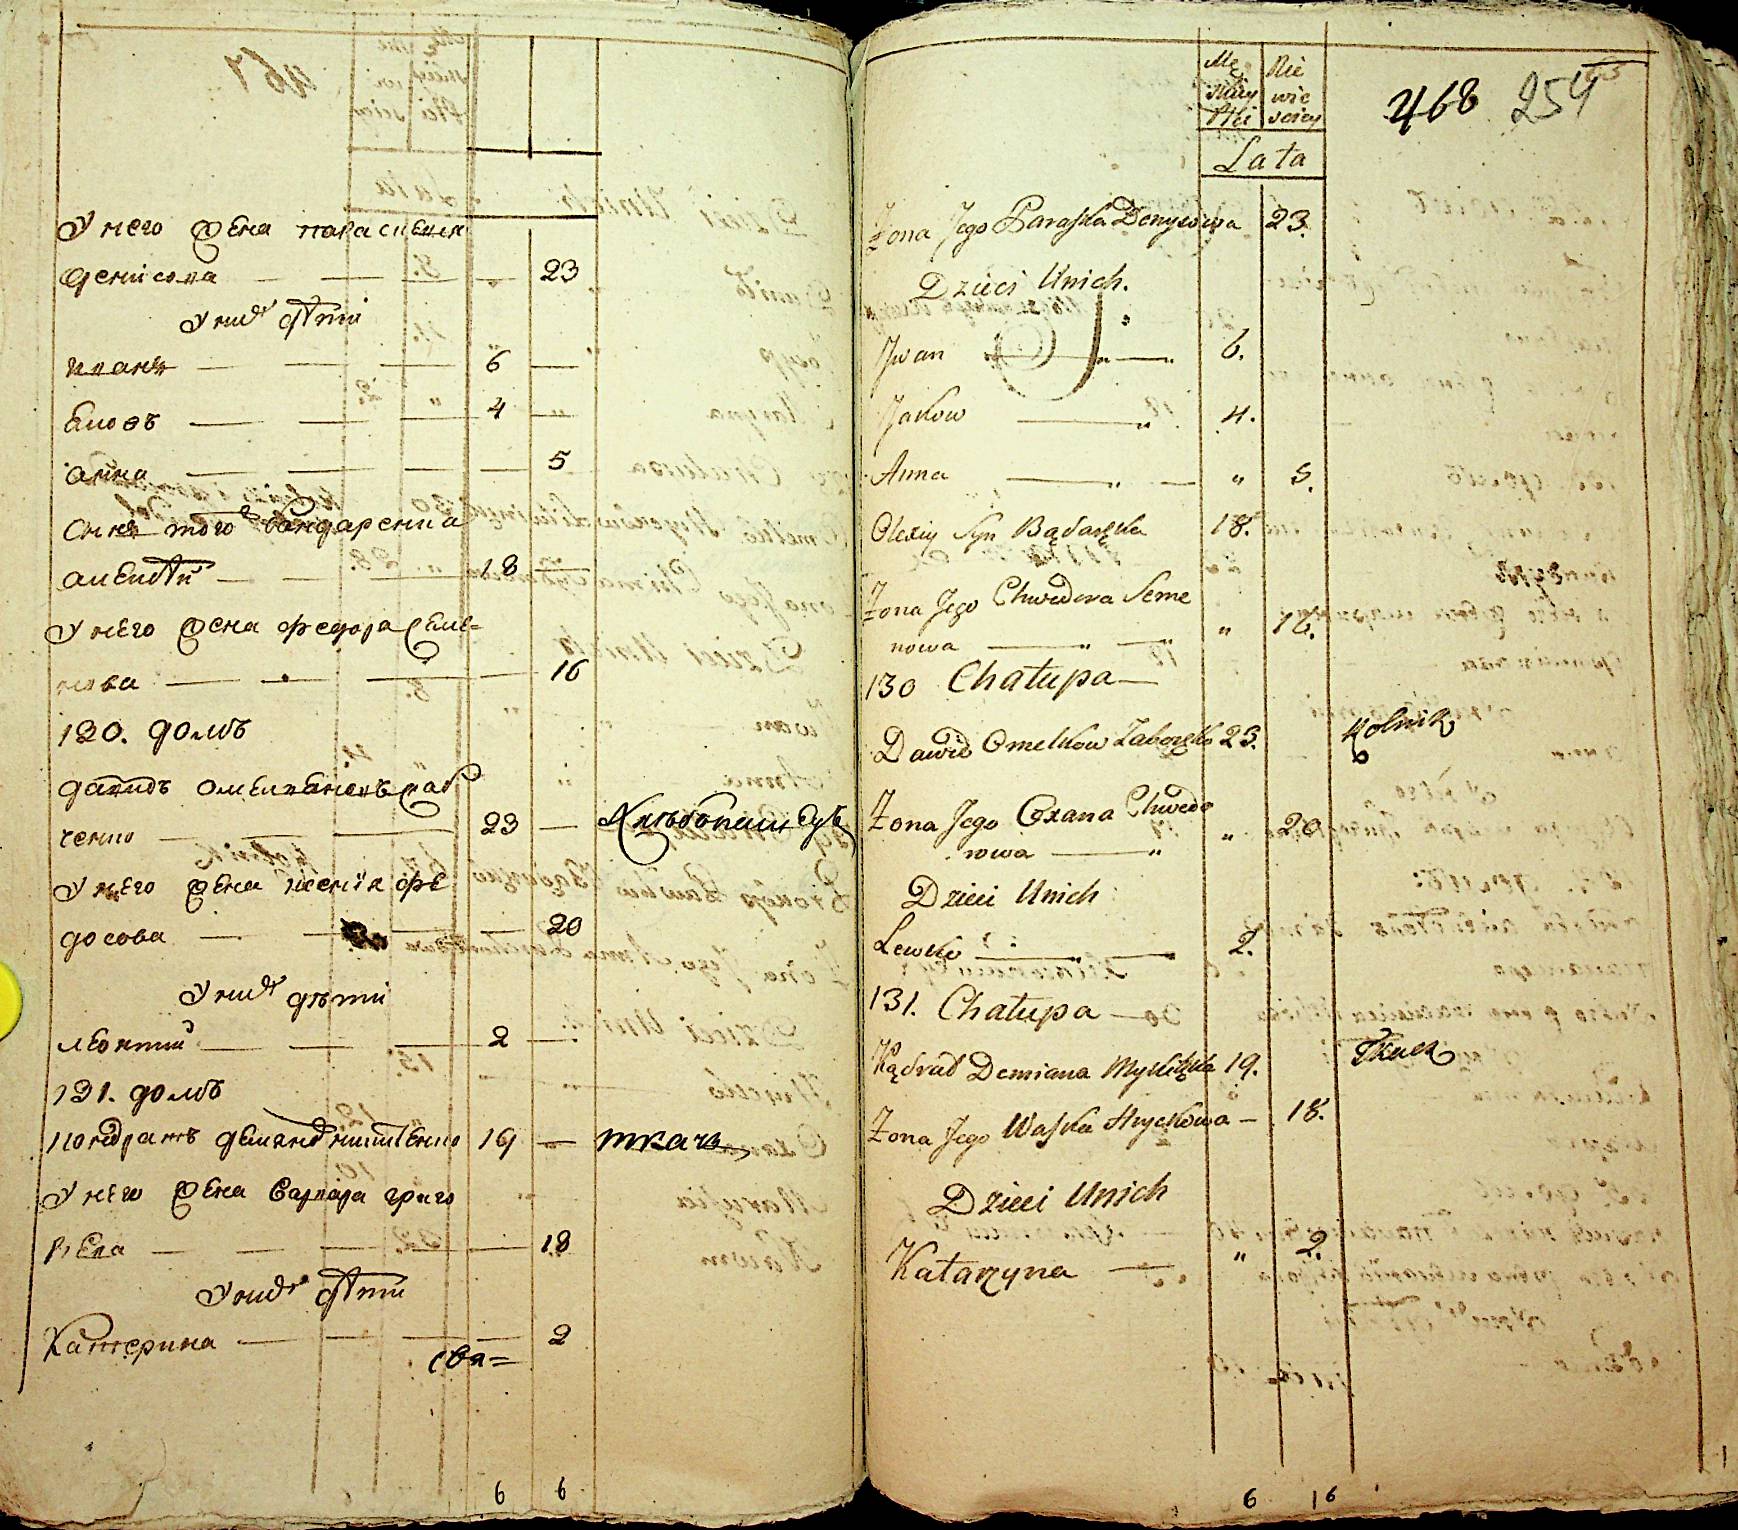 У него жена параскевия
денисова — — — 23
У них дѣти
иванъ — — — 6 —
Яковъ — — — 4 —
анна — — — — 5
Сынъ того бондаренка
алексѣй — — — 18 —
У него жена федора семе=
нова — — — — 16
130. домъ
давидъ омельяновъ заб
ченко — — — 23 — Хлѣбопашецъ
У него жена ксенія фе
досова — — — — 20
У них дѣти
леонтий — — — 2 —
131. домъ
кондратъ демяновъ 19 — ткачъ
У него жена варвара григо
рьева — — — — 18
У них дѣти
Катерина — — — — 2
6 6
Mę Nie
skiey wie
Płci sciey
Lata
468 254
Żona Jego Paraska Denysowa 23.
Dzieci Unich.
Jwan — „ — 6.
Jakow — „ 4.
Anna — „ — „ 5.
Olexiy Syn Bądaręka 18.
Żona Jego Chwedora Seme
nowa — „ — „ 16.
130 Chałupa —
Dawid Omelkow 23. Rolnik
Żona Jego Oxana Chwedo
rowa — „ „ 20
Dzieci Unich
Lewko — „ — 2.
131. Chałupa —
Kądrad Demiana 19. Tkacz
Żona Jego Waska Hryckowa — 18.
Dzieci Unich
Katarzyna — „ 2.
6 16